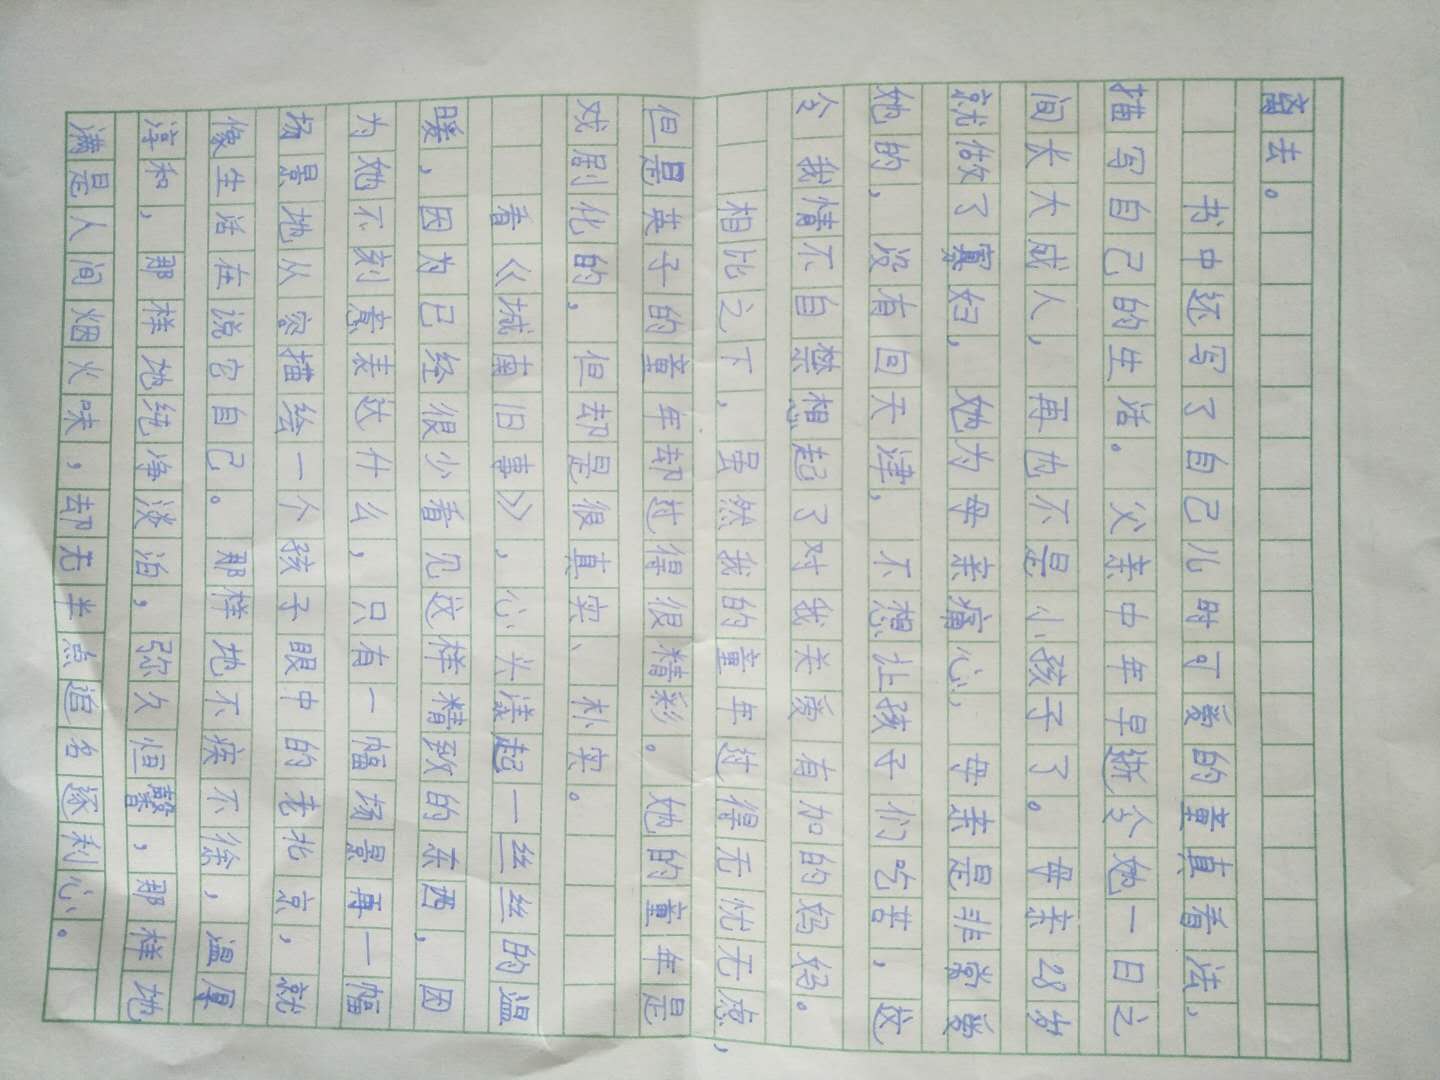 离去。
书中还写了自己儿时可爱的童真看法，
描写自己的生活。父亲中年早逝令她一日之
间长大成人，再也不是小孩子了。母亲28岁
就做了寡妇，她为母亲痛心，母亲是非常爱
她的，没有回天津，不想让孩子们吃苦，这
令我情不自禁想起了对我关爱有加的妈妈。
相比之下，虽然我的童年过得无忧无虑，
但是英子的童年却过得很精彩。她的童年是
戏剧化的，但却是很真实、朴实。
看《城南旧事》，心头漾起一丝丝的温
暖，因为已经很少看见这样精致的东西，因
为她不刻意表达什么，只有一幅场景再一幅
场景地从容描绘一个孩子眼中的老北京，就
像生活在说它自己。那样地不疾不徐，温厚
淳和，那样地纯净淡泊，弥久恒馨，那样地
满是人间烟火味，却无半点追名逐利心。